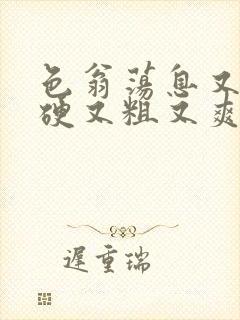 色翁荡息又
硬又粗又爽
遲重瑞